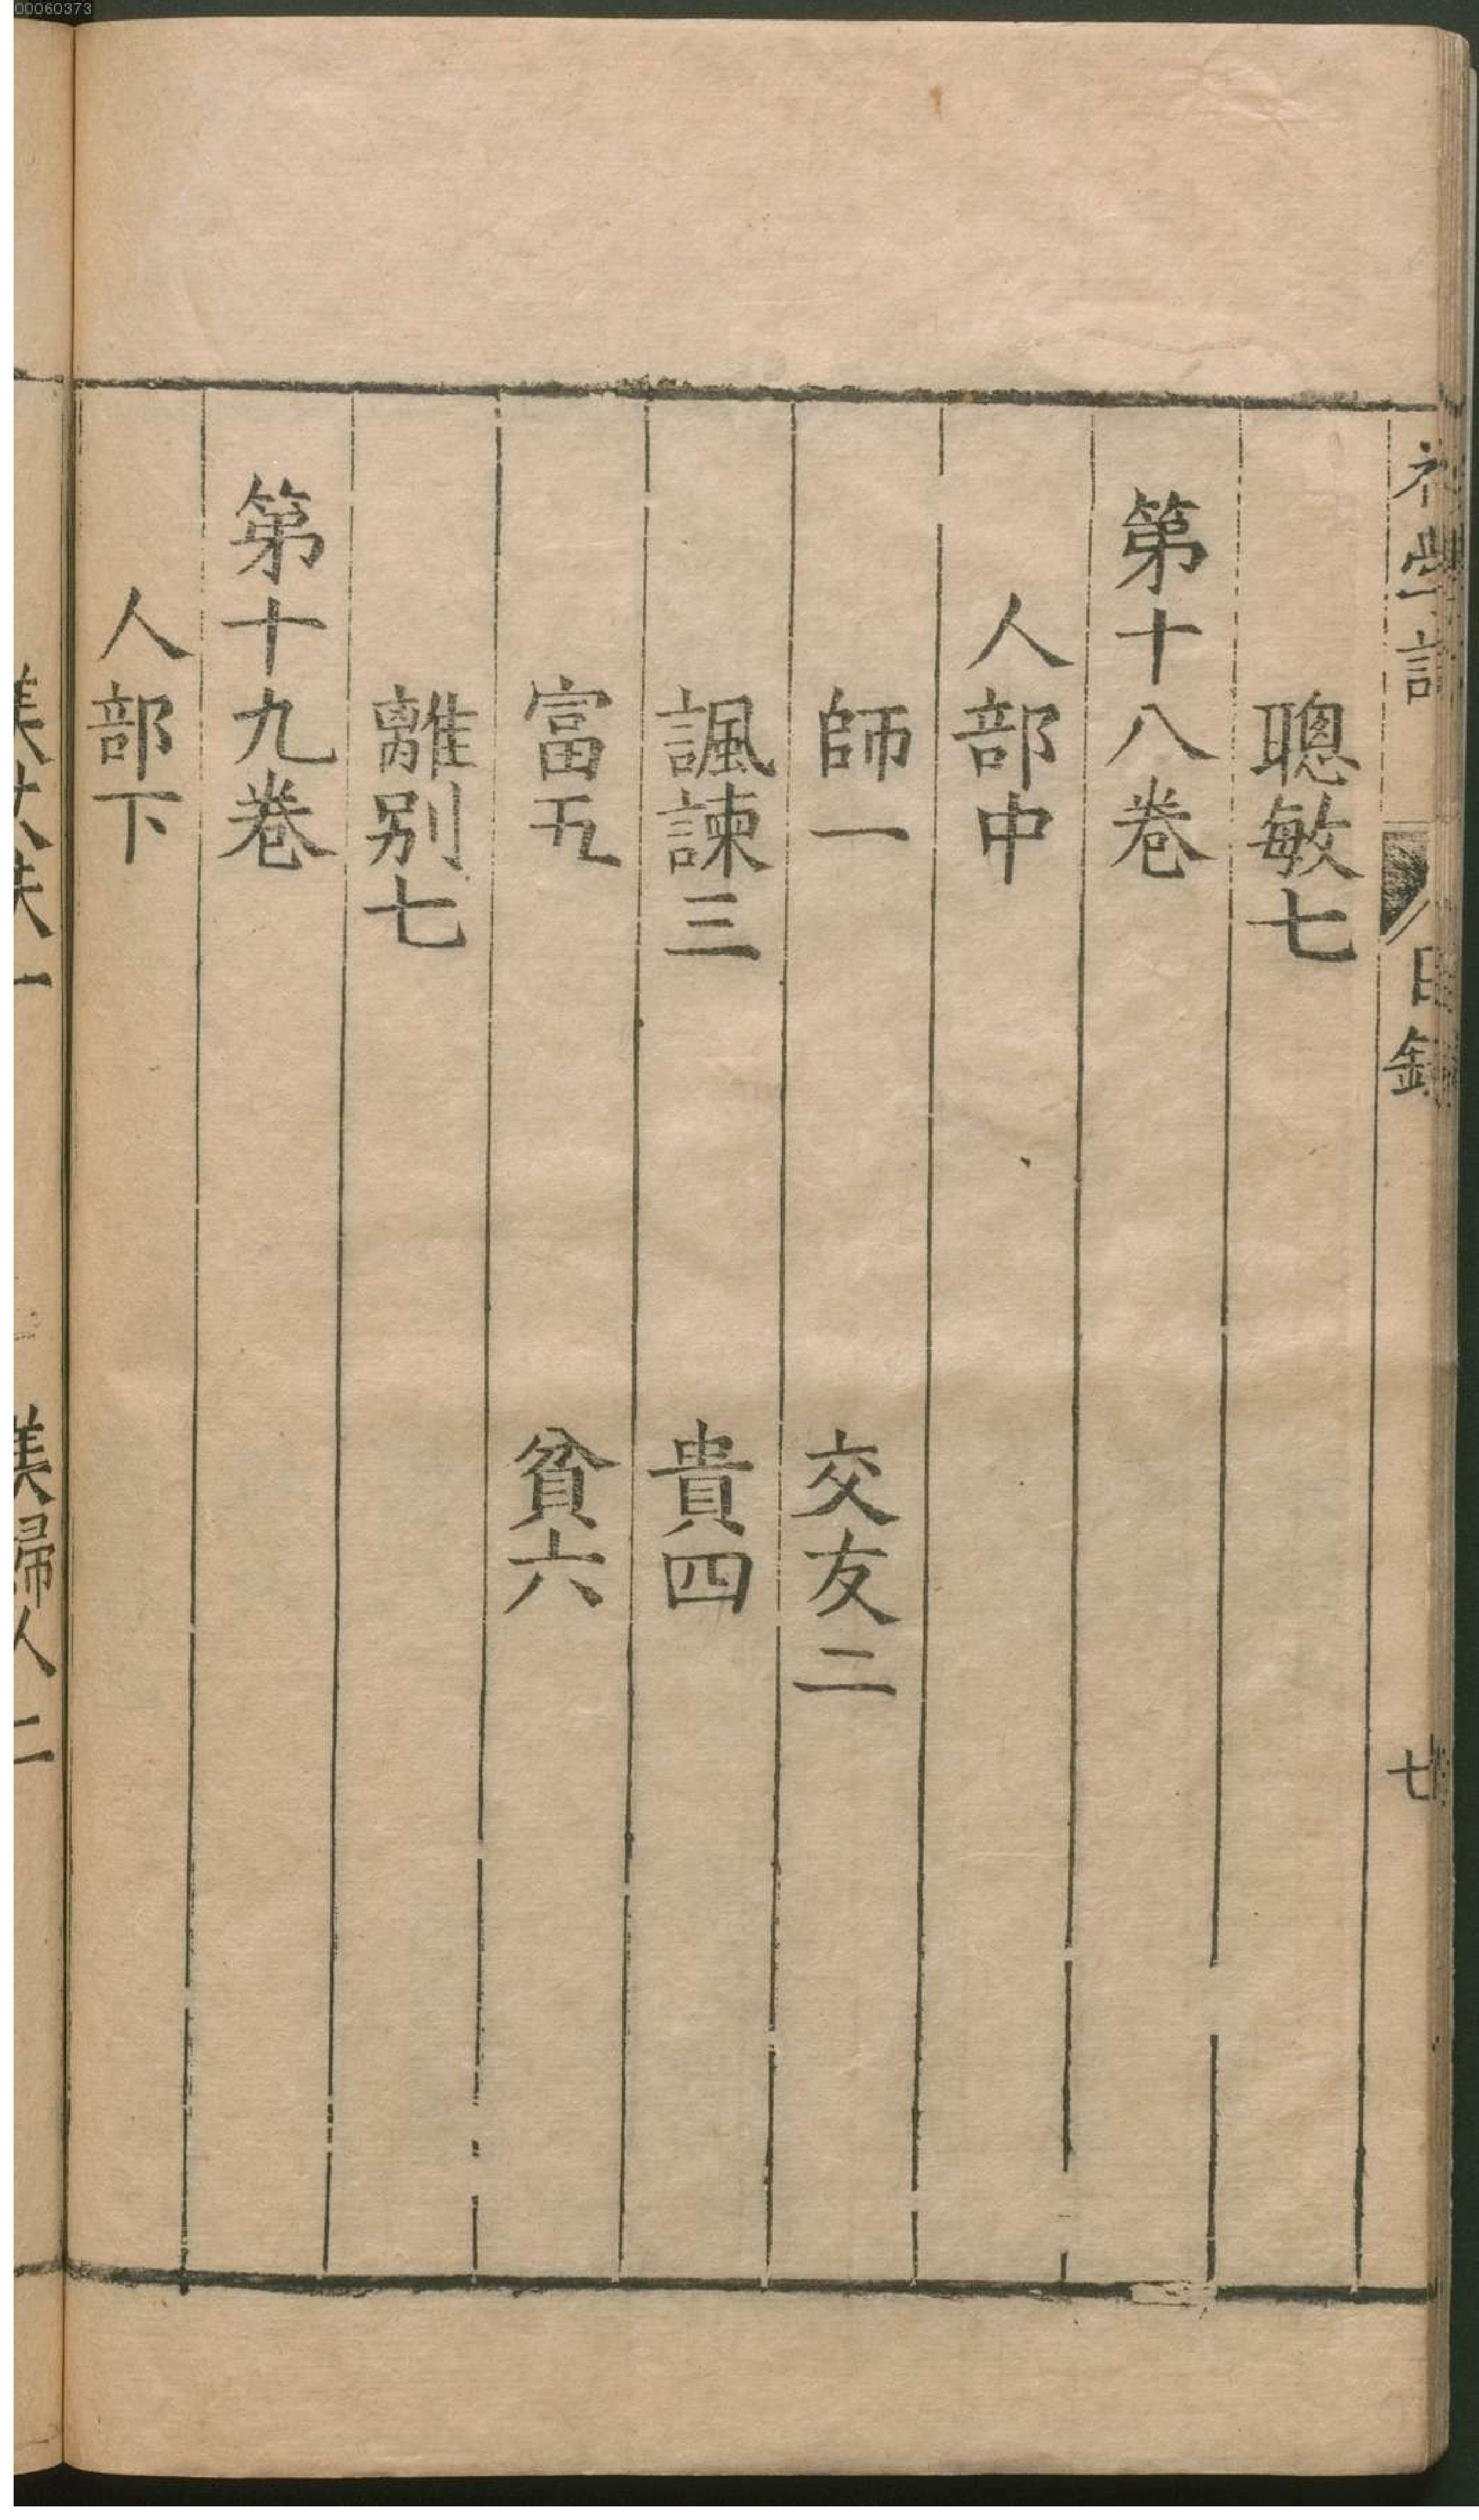 00060373
初學記
目錄
七
聰敏七
第十八卷
人部中
師一 交友二
諷諫三 貴四
富五 貧六
離別七
第十九卷
人部下